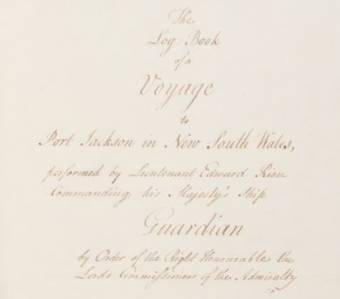 The
Log Book
of a
Voyage
to
Port Jackson in New South Wales,
performed by Lieutenant Edward Riou
Commanding his Majesty's Ship
Guardian
by Order of the Right Honourable the
Lords Commissioners of the Admiralty